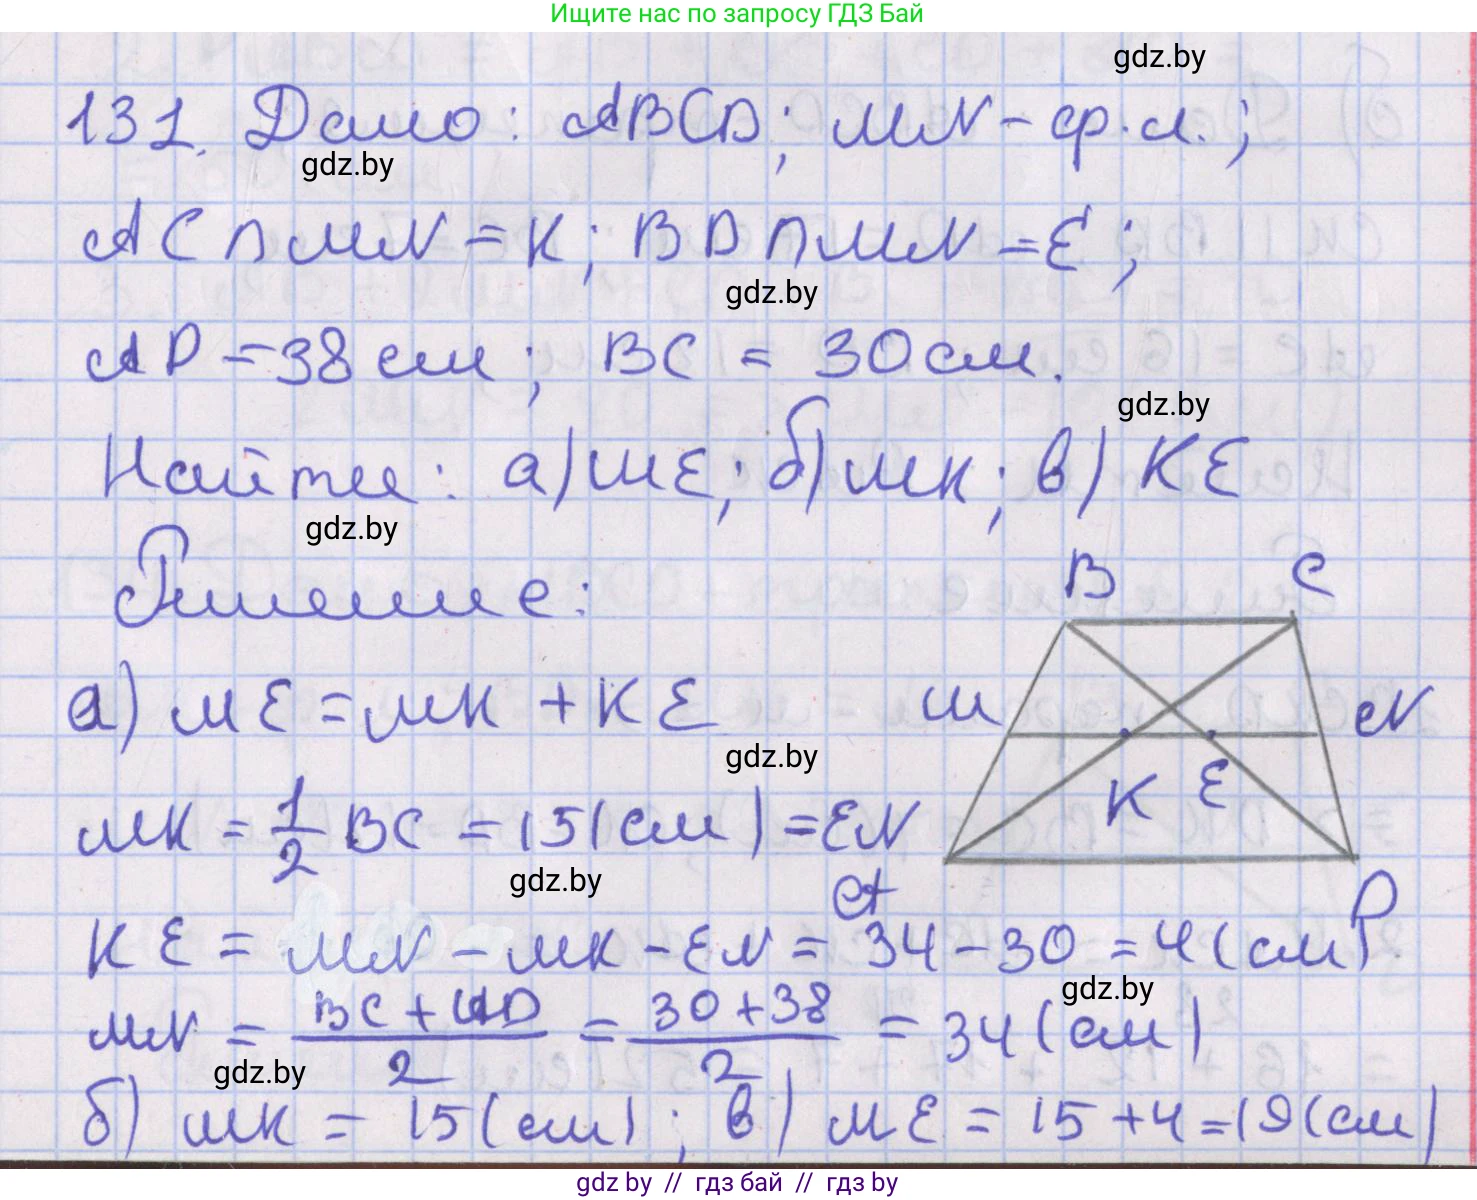 Ищите нас по запросу ГДЗ Бай
gdz.by
131. Дано: ABCD; MN - ср.л.;
gdz.by
AC ∩ MN = K; BD ∩ MN = E;
gdz.by
AD = 38 см; BC = 30 см.
gdz.by
Найти: а) ME; б) MK; в) KE
gdz.by
Решение:
B C
а) ME = MK + KE
M N
gdz.by
K E
MK = 1/2 BC = 15 (см) = EN
gdz.by
A D
KE = MN - MK - EN = 34 - 30 = 4 (см)
gdz.by
MN = (BC + AD)/2 = (30 + 38)/2 = 34 (см)
gdz.by
б) MK = 15 (см); в) ME = 15 + 4 = 19 (см)
gdz.by // гдз бай // гдз by